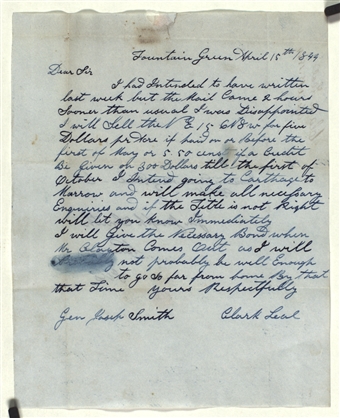 Fountain Green April 15th 1844
Dear Sir
I had Intended to have written
last week but the Mail Came 2 hours
Sooner than usual I was Disappointed
I will Sell the N E 15 6N 8 w for five
Dollars pr Acre if paid on or Before the
first of May or 5.50 cents if a Credit
Be Given on 300 Dollars till the first of
October I Intend going to Carthage to
Morrow and will make all necessary
Enquiries and if the Title is not Right
will let you know Immediately
I will Give the Necessary Bond when
Mr Clayton Comes Out as I will
not probably be well Enough
to go So far from home By that
that Time yours Respectfully
Gen Smith Clark Leal